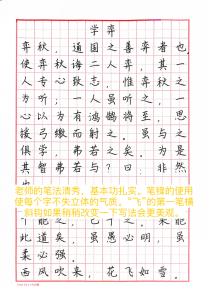 学弈
弈秋,通国之善弈者也。
使弈秋诲二人弈,其一
人专心致志,惟弈秋之
为听;一人虽听之,一
心以为有鸿鹄将至,思
援弓缴而射之。虽与之
俱学,弗若之矣。为是
其智弗若与?曰:非然
也
老师的笔法清秀,基本功扎实。笔锋的使用
使每个字不失立体的气质。“飞”的第一笔横
斜钩如果稍稍改变一下写法会更美观。
之。果能
此道矣,虽愚必明,虽
柔必强。
西风吹来,花飞如雪。